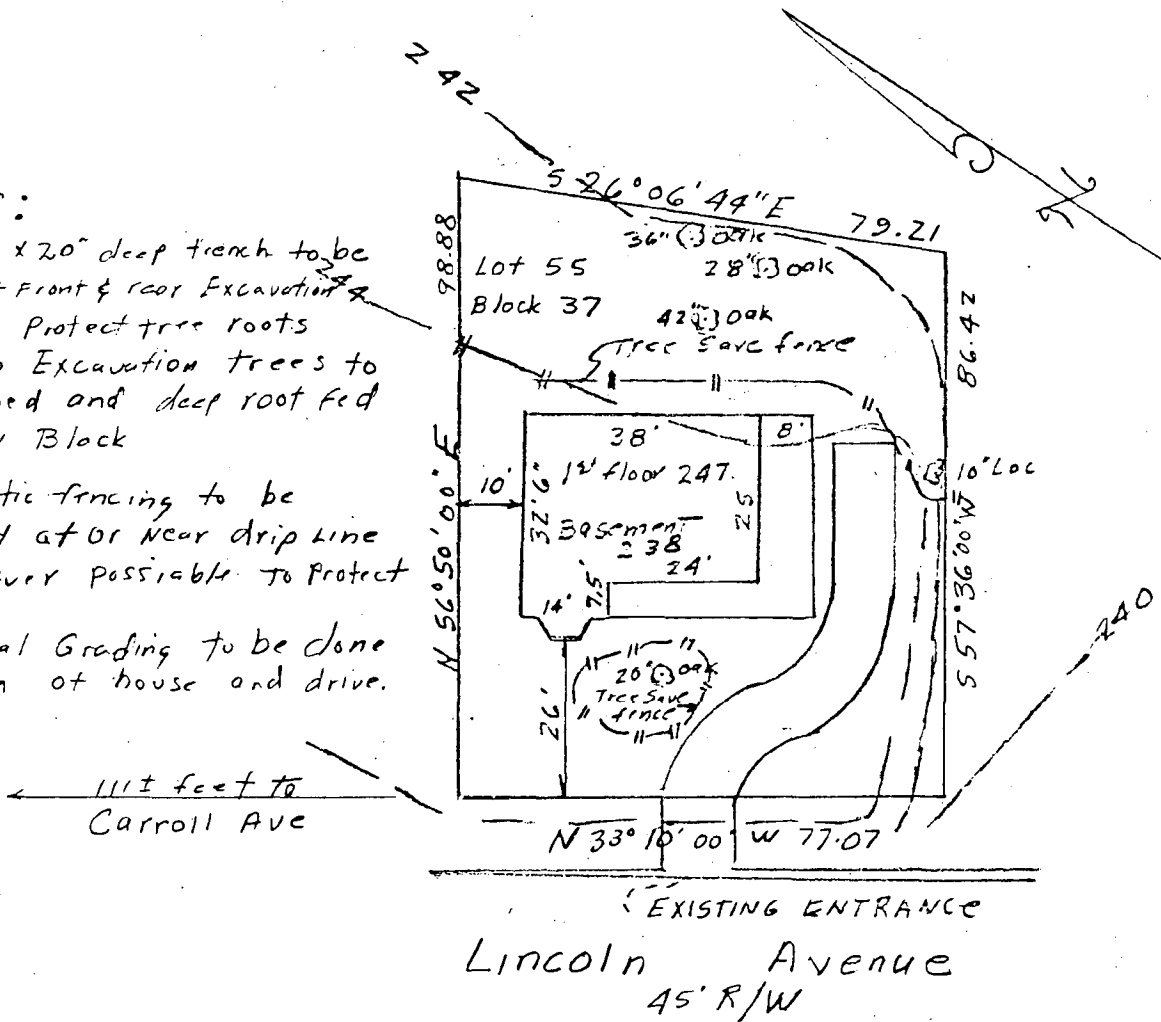 242
S 26° 06' 44" E 79.21
x 20" deep trench to be
Front & rear Excavation
Protect tree roots
Excavation trees to
ed and deep root fed
Block
tic fencing to be
at or Near drip Line
ver Possiable to Protect
al Grading to be done
of house and drive.
111± feet to
Carroll Ave
244
98.88
N 56° 50' 00" E
Lot 55
Block 37
36" Oak
28" Oak
42" Oak
Tree Save fence
86.42
S 57° 36' 00" W
10" Loc
38'
8'
10'
1st floor 247.
32' 6"
25
Basement
238
24'
14'
7.5'
20" Oak
Tree Save
fence
26'
240
N 33° 10' 00" W 77.07
EXISTING ENTRANCE
Lincoln Avenue
45' R/W